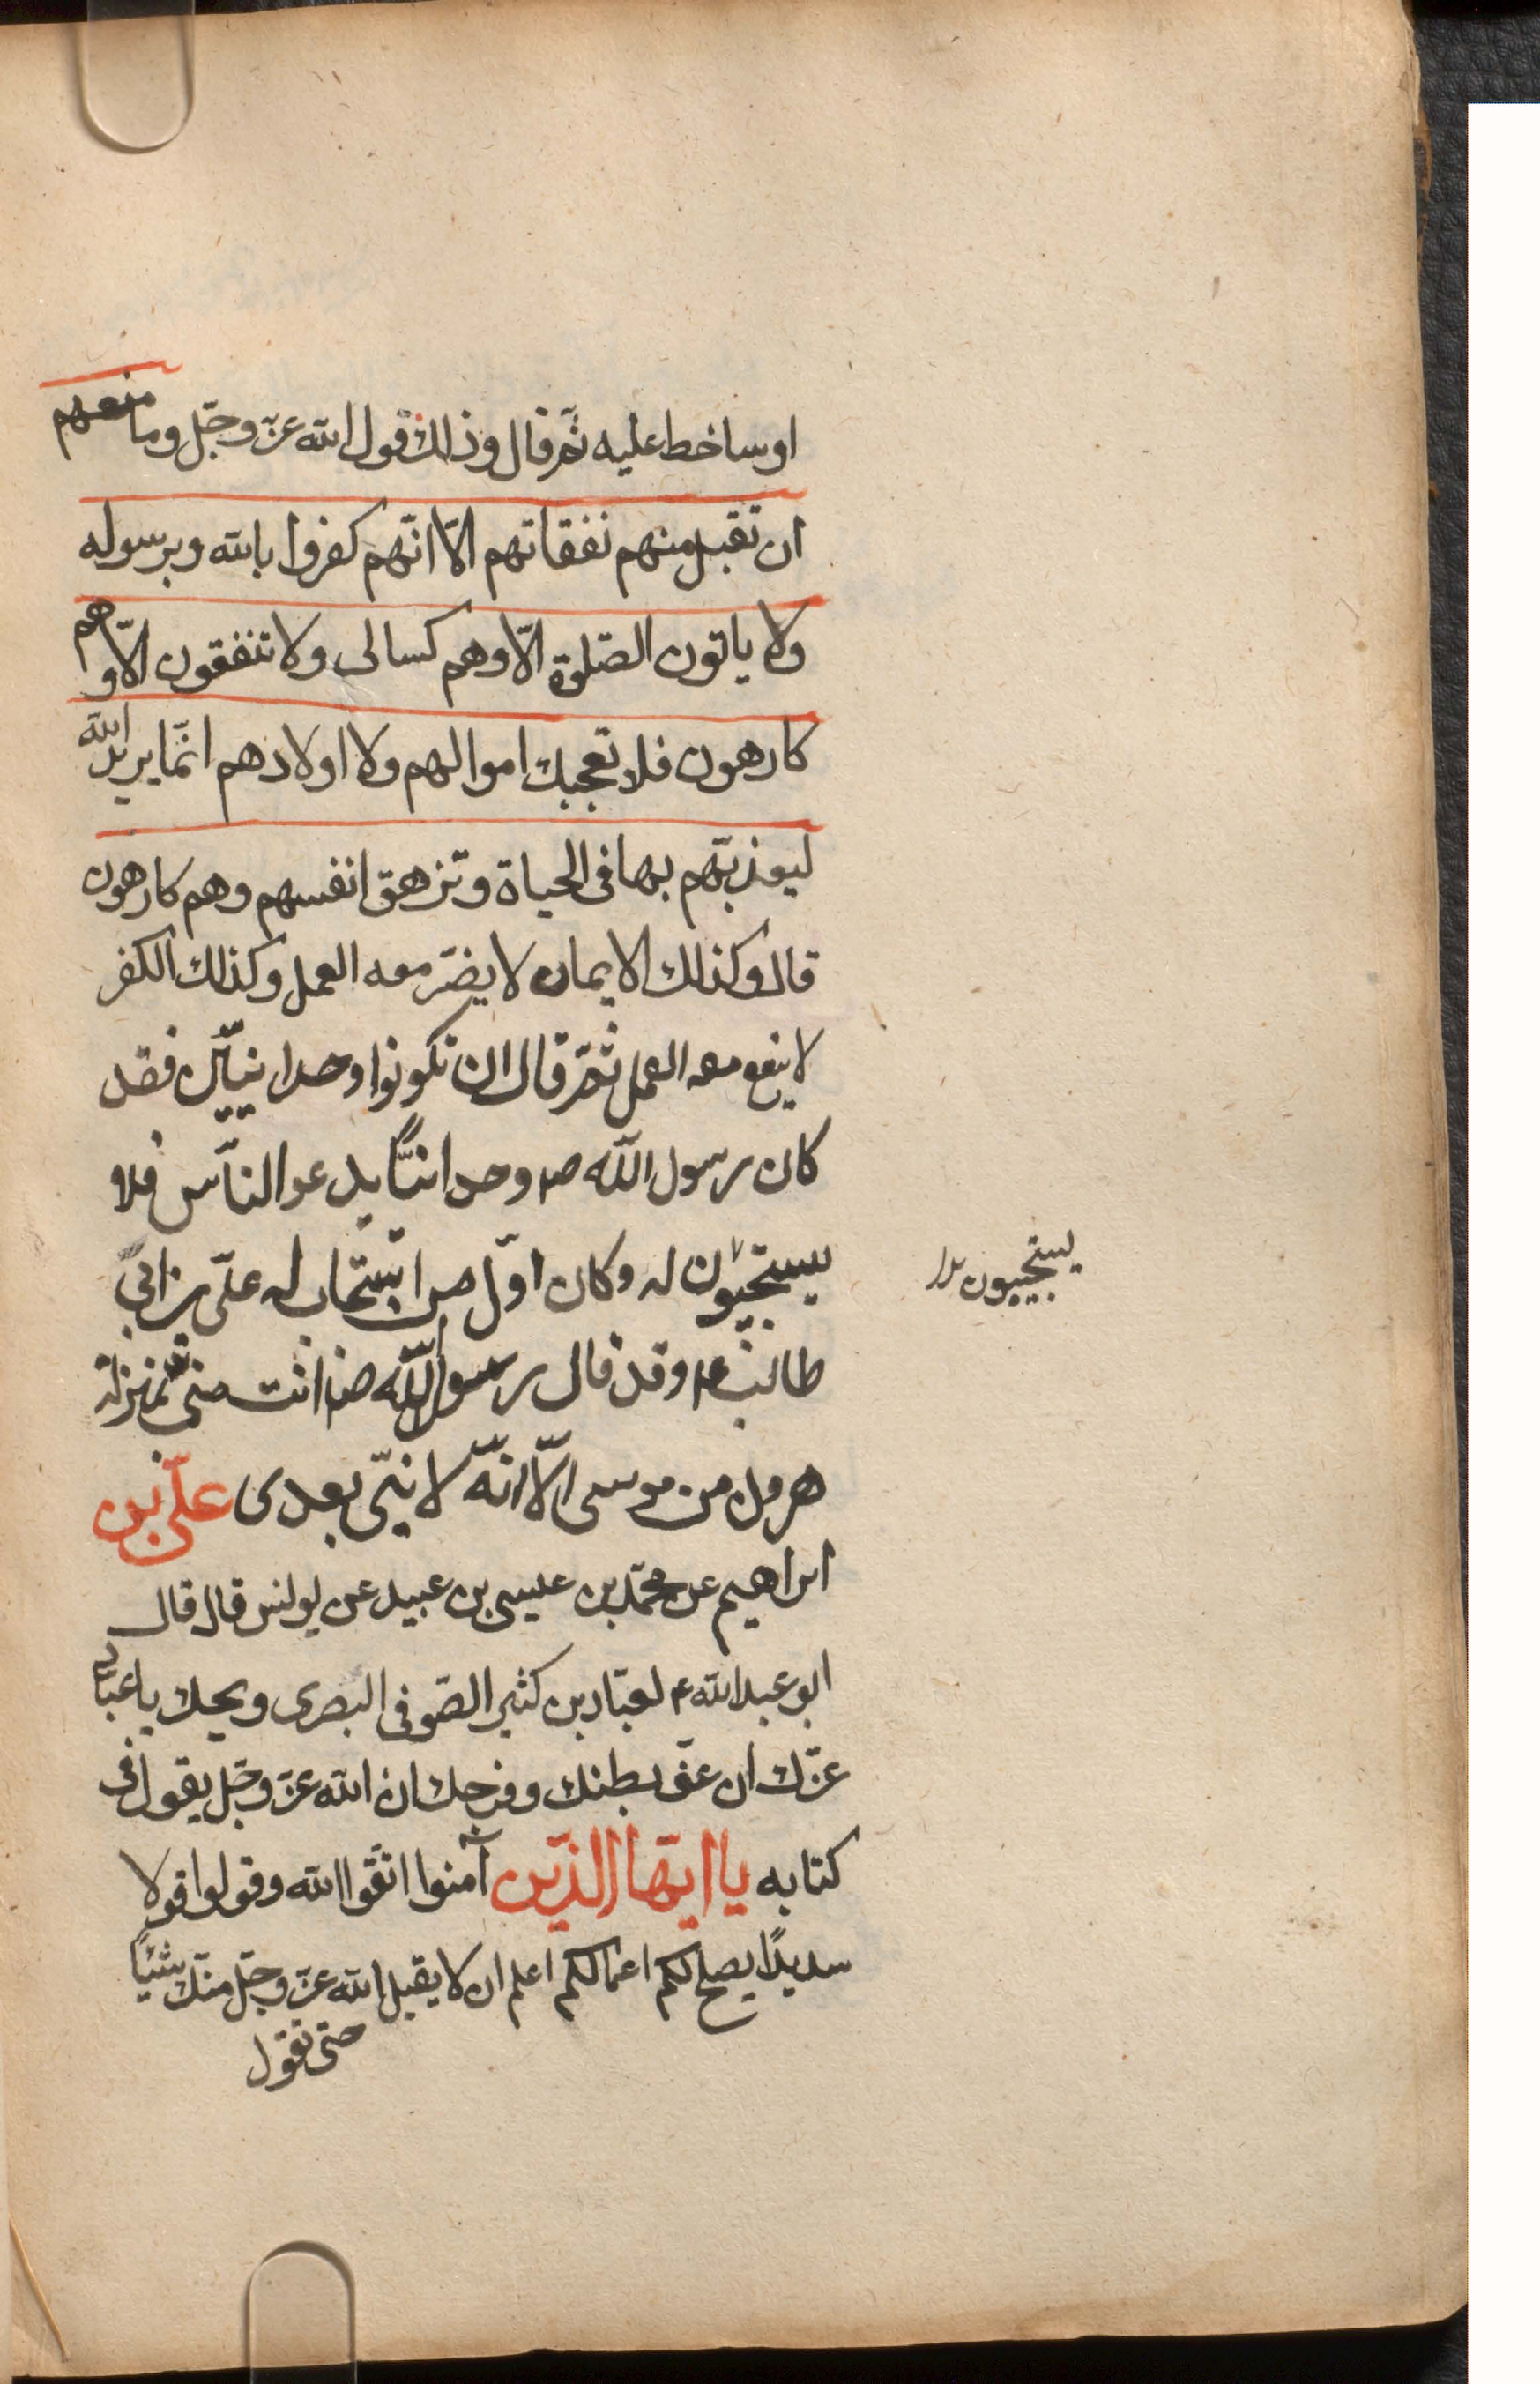 او ساخط عليه ثمّ قال وذلك قول الله عزّ وجّل وما منعهم
ان تقبل منهم نفقاتهم الّا انّهم كفروا بالله وبرسوله
ولا ياتون الصّلوة الّا وهم كسالى ولا تنفقون الّا وهم
كارهون فلا تعجبك اموالهم ولا اولادهم انّما يريد الله
ليعذبّهم بها فى الحياة وتزهق انفسهم وهم كارهون
قال وكذلك الايمان لا يضرّ معه العمل وكذلك الكفر
لا ينفع معه العمل ثمّ قال ان تكونوا وحدانييّن فقد
كان رسول الله ص وحدانيًّا يدعو الناّس فلا
يستجيبون له وكان اوّل من استجاب له علّى بن ابى
طالب ع وقد قال رسول اللّه ص انت منّى بمنزلة
هرون من موسى الّا انّه لا نبّى بعدى علّى بن
ابراهيم عن محمّد بن عيسى بن عبيد عن يونس قال قال
ابو عبد الله ع لعبّاد بن كثير الصّوفى البصرى ويحك يا عبّاد
غرّك ان عفّ بطنك وفرجك ان الله عزّ وجّل يقول فى
كتابه يا ايّها الذّين آمنوا اتّقوا الله وقولوا قولا
سديدًا يصلح لكم اعمالكم اعلم ان لا يقبل الله عزّ وجّل منك شيئًا
حتى تقول
يستجيبون